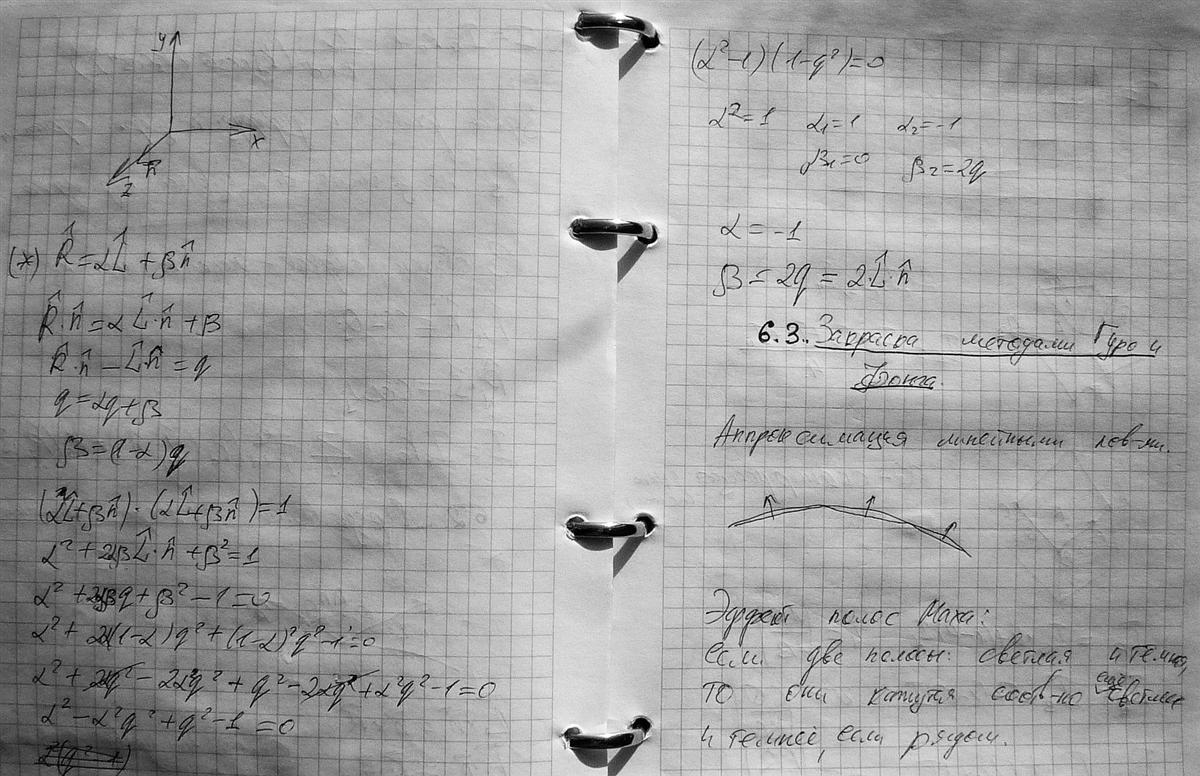 y
x
n̂
z
(*) R̂ = αL̂ + βn̂
R̂·n̂ = αL̂·n̂ + β
R̂·n̂ = L̂n̂ = q
q = αq + β
β = (1-α)q
(αL̂+βn̂)·(αL̂+βn̂) = 1
α² + 2αβL̂·n̂ + β² = 1
α² + 2αβq + β² - 1 = 0
α² + 2α(1-α)q² + (1-α)²q² - 1 = 0
α² + 2αq² - 2α²q² + q² - 2αq² + α²q² - 1 = 0
α² - α²q² + q² - 1 = 0
(α²-1)(1-q²)=0
α²=1 α₁=1 α₂=-1
β₁=0 β₂=2q
α = -1
β = 2q = 2·L̂·n̂
6.3. Закраска методами Гуро и
Фонга.
Аппроксимация линейными пов-ми.
Эффект полос Маха:
если две полосы: светлая и темная,
то они кажутся соотв-но еще светлее
и темней, если рядом.